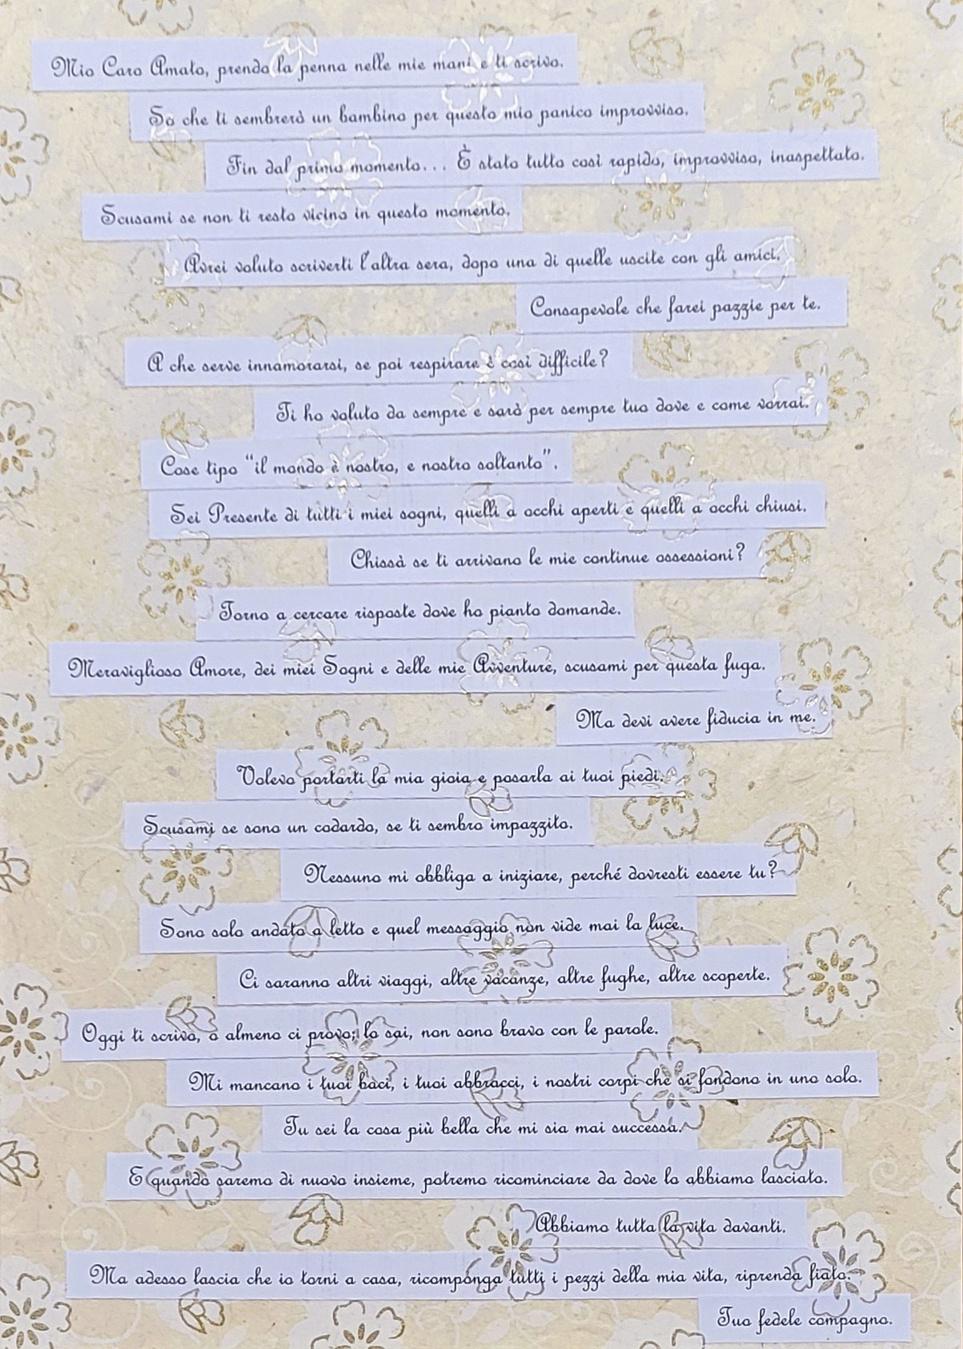 Mio Caro Amato, prendo la penna nelle mie mani e ti scrivo.
So che ti sembrerò un bambino per questo mio panico improvviso.
Fin dal primo momento... È stato tutto così rapido, improvviso, inaspettato.
Scusami se non ti resto vicino in questo momento.
Avrei voluto scriverti l'altra sera, dopo una di quelle uscite con gli amici.
Consapevole che farei pazzie per te.
A che serve innamorarsi, se poi respirare è così difficile?
Ti ho voluto da sempre e sarò per sempre tuo dove e come vorrai.
Cose tipo “il mondo è nostro, e nostro soltanto”.
Sei Presente di tutti i miei sogni, quelli a occhi aperti e quelli a occhi chiusi.
Chissà se ti arrivano le mie continue ossessioni?
Torno a cercare risposte dove ho pianto domande.
Meraviglioso Amore, dei miei Sogni e delle mie Avventure, scusami per questa fuga.
Ma devi avere fiducia in me.
Volevo portarti la mia gioia e posarla ai tuoi piedi.
Scusami se sono un codardo, se ti sembro impazzito.
Nessuno mi obbliga a iniziare, perché dovresti essere tu?
Sono solo andato a letto e quel messaggio non vide mai la luce.
Ci saranno altri viaggi, altre vacanze, altre fughe, altre scoperte.
Oggi ti scrivo, o almeno ci provo; lo sai, non sono bravo con le parole.
Mi mancano i tuoi baci, i tuoi abbracci, i nostri corpi che si fondono in uno solo.
Tu sei la cosa più bella che mi sia mai successa.
E quando saremo di nuovo insieme, potremo ricominciare da dove lo abbiamo lasciato.
Abbiamo tutta la vita davanti.
Ma adesso lascia che io torni a casa, ricomponga tutti i pezzi della mia vita, riprenda fiato.
Tuo fedele compagno.